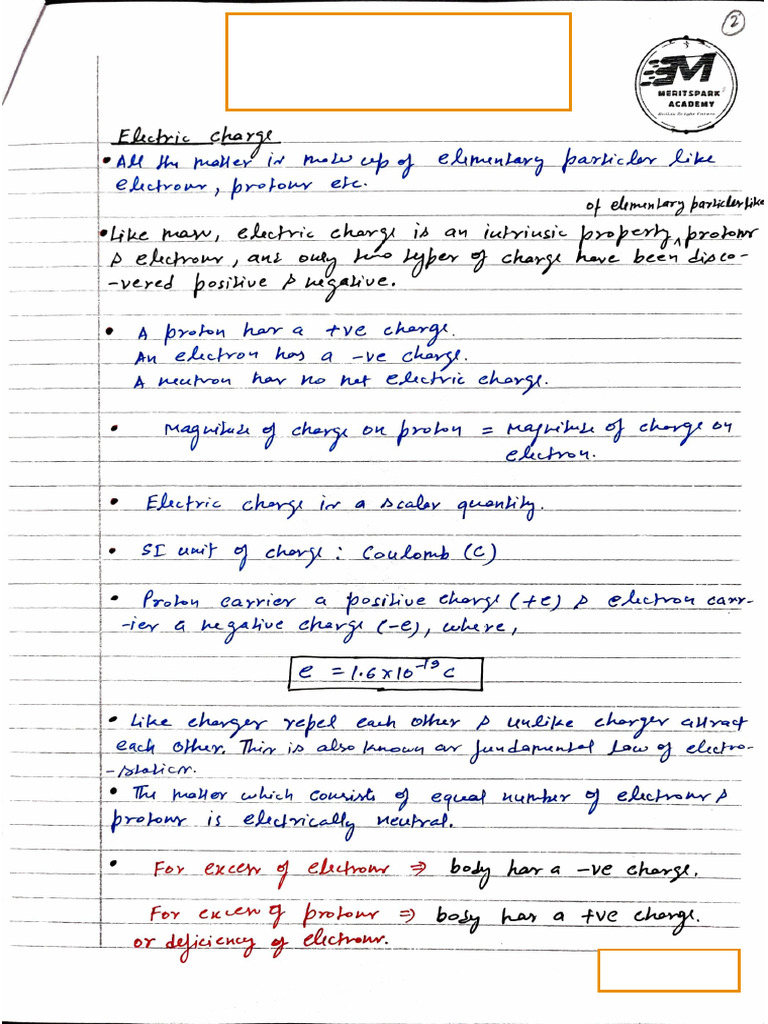 2
MERITSPARK
ACADEMY
Electric charge
• All the matter is made up of elementary particles like
electrons, protons etc.
of elementary particles like
• Like mass, electric charge is an intrinsic property ^ protons
& electrons, and only two types of charge have been disco-
-vered positive & negative.
• A proton has a +ve charge.
An electron has a -ve charge.
A neutron has no net electric charge.
• Magnitude of charge on proton = Magnitude of charge on
electron.
• Electric charge is a scalar quantity.
• SI unit of charge : Coulomb (C)
• Proton carries a positive charge (+e) & electron carr-
-ies a negative charge (-e), where,
e = 1.6 x 10⁻¹⁹ C
• Like charges repel each other & unlike charges attract
each other. This is also known as fundamental law of electro-
-statics.
• The matter which consists of equal number of electrons &
protons is electrically neutral.
• For excess of electrons ⇒ body has a -ve charge.
For excess of protons ⇒ body has a +ve charge.
or deficiency of electrons.